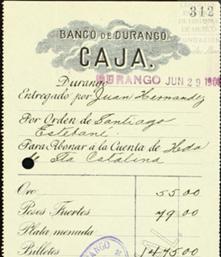 312
BANCO DE DURANGO.
CAJA.
Durango
DURANGO JUN 29 190
Entregado por Juan Hernandez
Por Orden de Santiago
Estebané
Para Abonar a la Cuenta de Hda
de Sta Catalina
Oro 55 00
Pesos Fuertes 49 00
Plata menuda
Billetes
DURANGO